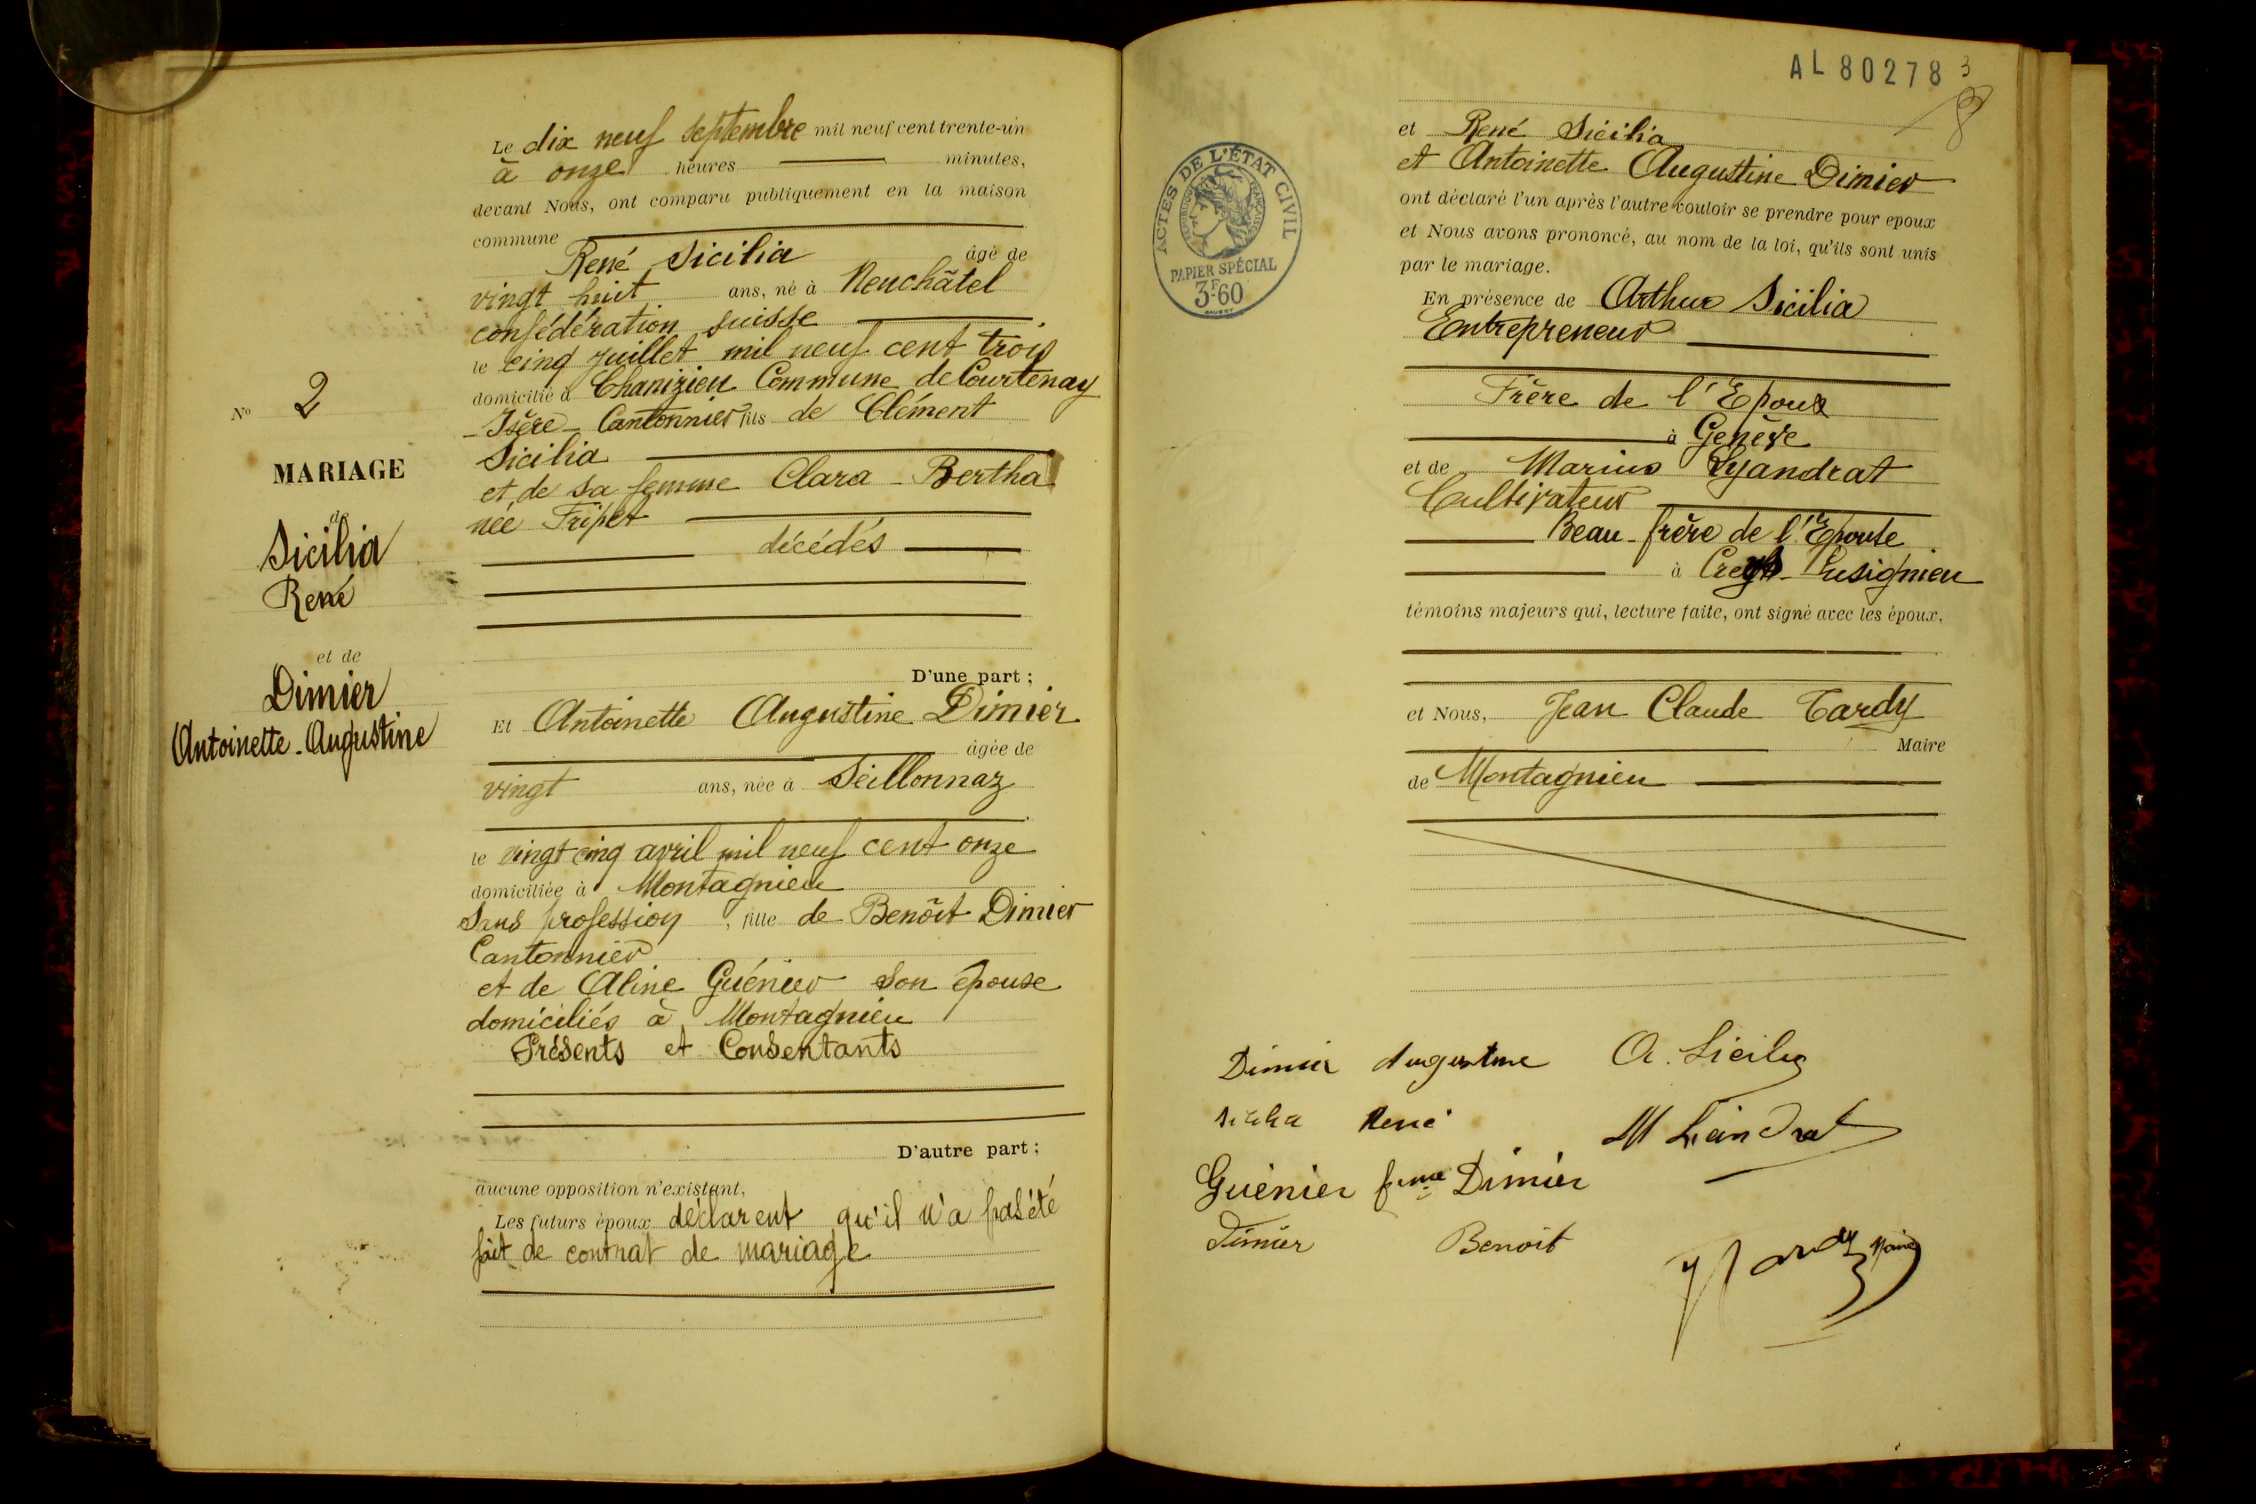 N° 2
MARIAGE
de
Sicilia
René
et de
Dimier
Antoinette-Augustine
Le dix neuf septembre mil neuf cent trente-un
à onze heures minutes,
devant Nous, ont comparu publiquement en la maison
commune
René Sicilia âgé de
vingt huit ans, né à Neuchâtel
confédération suisse
le cinq juillet mil neuf cent trois
domicilié à Chanizieu Commune de Courtenay
- Isère - Cantonnier fils de Clément
Sicilia
et de sa femme Clara - Bertha
née Tripet
décédés
D'une part ;
Et Antoinette Augustine Dimier
âgée de
vingt ans, née à Seillonnaz
le vingt cinq avril mil neuf cent onze
domiciliée à Montagnieu
Sans profession, fille de Benôit Dimier
Cantonnier
et de Aline Guénier son épouse
domiciliés à Montagnieu
Présents et Consentants
D'autre part ;
aucune opposition n'existant,
Les futurs époux déclarent qu'il n'a pas été
fait de contrat de mariage
AL 80278
3
ACTES DE L'ÉTAT CIVIL
PAPIER SPÉCIAL
3F.60
et René Sicilia
et Antoinette Augustine Dimier
ont déclaré l'un après l'autre vouloir se prendre pour epoux
et Nous avons prononcé, au nom de la loi, qu'ils sont unis
par le mariage.
En présence de Arthur Sicilia
Entrepreneur
Frère de l'Epoux
à Genève
et de Marius Lyandrat
Cultivateur
Beau-frère de l'Epouse
à Creys-Pusignieu
témoins majeurs qui, lecture faite, ont signé avec les époux.
et Nous, Jean Claude Tardy
Maire
de Montagnieu
Dimier Augustine A. Sicilia
Sicilia René
M Liandrat
Guénier fme Dimier
Dimier Benoit
Tardy Maire